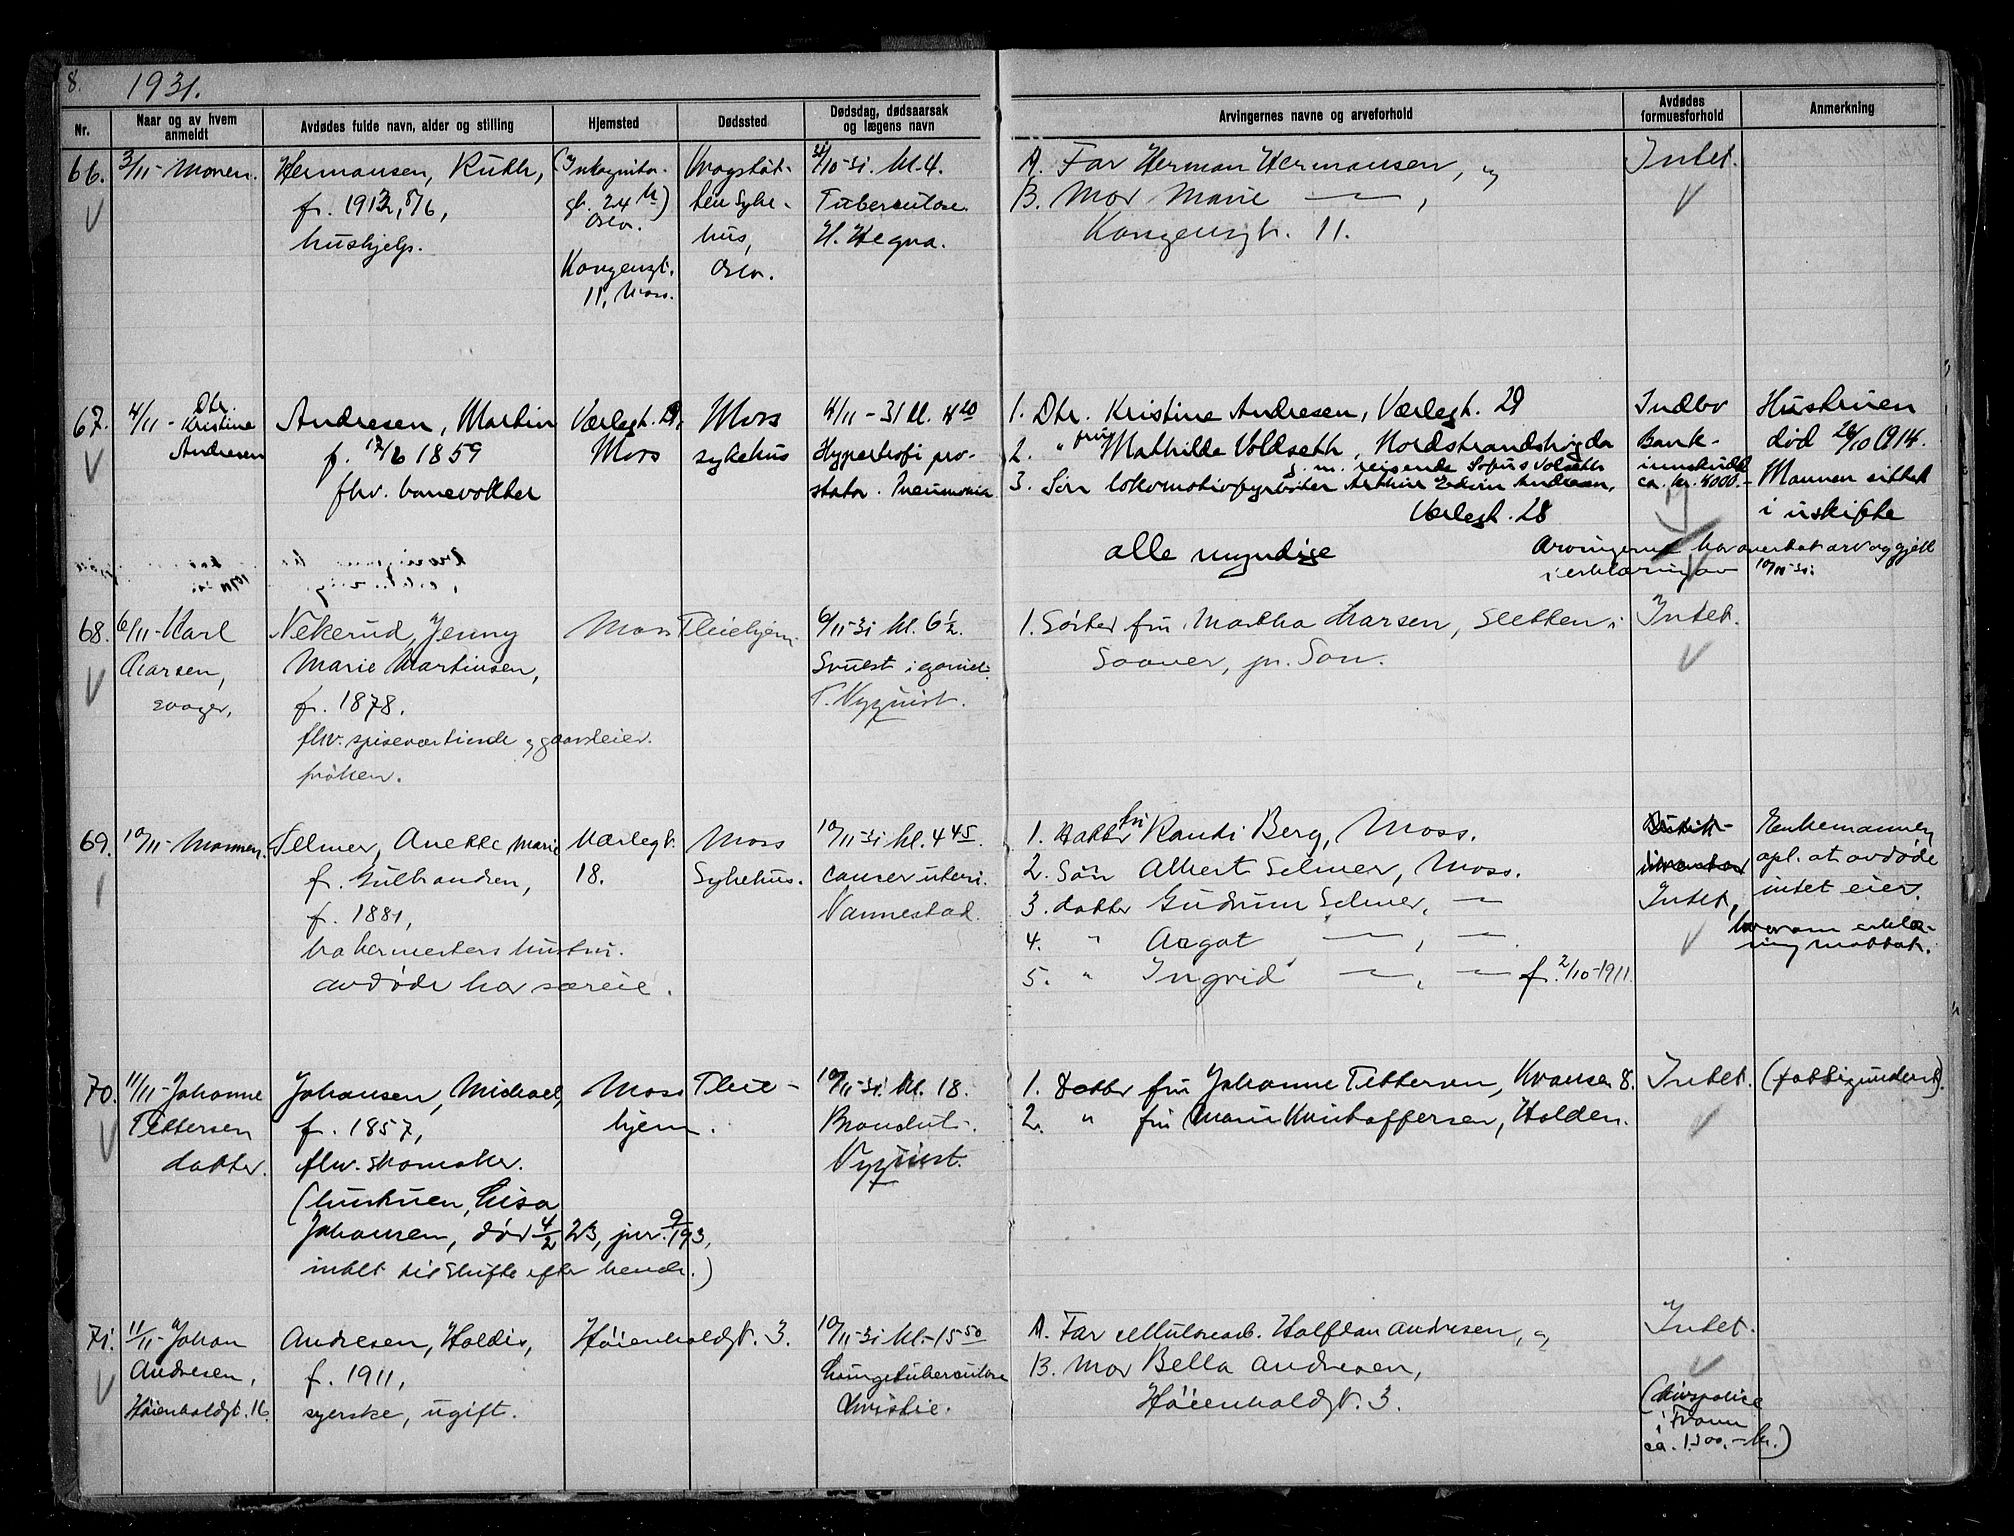 8. 1931.
Nr.
Naar og av hvem
anmeldt
Avdødes fulde navn, alder og stilling
Hjemsted
Dødssted
Dødsdag, dødsaarsak
og lægens navn
Arvingernes navne og arveforhold
Avdødes
formuesforhold
Anmerkning
66.
3/11 - Moren.
Hermansen, Ruth,
f. 1912, 5/6,
hushjelp.
(Inkognito-
gt. 24 II)
Oslo.
Kongensgt.
11, Moss.
Krogstøt-
ten Syke-
hus,
Oslo.
31/10-31. kl. 4.
Tuberculose.
H. Hegna.
A. Far Herman Hermansen, og
B. Mor Marie — ,
Kongensgt. 11.
Intet.
67.
4/11 - Dtr.
Kristine
Andresen
Andresen, Martin
f. 12/6 1859
fhv. banevokter
Værlegt. 29,
Moss
Moss
sykehus
4/11 - 31 kl. 4 20
Hypertrofi pro-
stata. Pneumonia
1. Dtr. Kristine Andresen, Værlegt. 29
2. " fru Mathilde Voldseth, Nordstrandshøgda
g. m. reisende Sofus Volseth
3. Søn lokomotivfyrbøter Arthur Edvin Andresen,
Værlegt. 28
alle myndige
Indbo
Bank-
innskudd
ca. kr. 4000.-
Hustruen
død 28/10 1914.
Mannen sittet
i uskifte
Arvingerne har overtat arv og gjeld
i erklæring av 10/11-31.
68.
6/11 - Karl
Larsen,
svoger,
Nekerud, Jenny
Marie Martinsen,
f. 1878.
fhv. spiseværtinde og gaardeier.
frøken.
Moss Pleiehjem.
6/11-31 kl. 6 1/2.
Svulst i
T. Nyquist.
1. Søster fru Martha Larsen, Sletten i
Saaner, pr. Son.
Intet.
69.
10/11 - Mannen.
Selmer, Anette Marie
f. Gulbrandsen,
f. 1881,
hustru.
avdøde har særeie.
Værlegt.
18.
Moss
Sykehus.
10/11-31 kl. 4 45.
cancer uteri.
Vannestad.
1. datter fru Randi Berg, Moss.
2. Søn Albert Selmer, Moss.
3. datter Gudrun Selmer, —
4. " Aagot — , —
5. " Ingrid — , — f. 2/10-1911.
Intet,
Enkemannen
opl. at avdøde
intet eier,
hvorom erklæ-
ring mottat.
70.
11/11 - Johanne
Pettersen
datter.
Johansen, Michael,
f. 1857,
fhv. skomaker.
(hustruen, Lisa
Johansen, død 4/2 23, jnr. 9/193,
intet til Skifte efter hende.)
Moss Pleie-
hjem.
10/11-31. kl. 18.
Nyquist.
1. datter fru Johanne Pettersen, Kransen 8.
2. " fru Marie Kristoffersen, Halden.
Intet. (fattigunderst.)
71.
11/11 - Johan
Andresen,
Høienholdgt. 16.
Andresen, Haldis,
f. 1911,
syerske, ugift.
Høienholdgt. 3.
10/11-31 kl. 15 50
Lungetuberculose
Christie.
A. Far cellulosearb. Halfdan Andresen, og
B. Mor Bella Andresen,
Høienholdgt. 3.
Intet.
(Livspolise
i Fram
ca. 1500.- kr.)